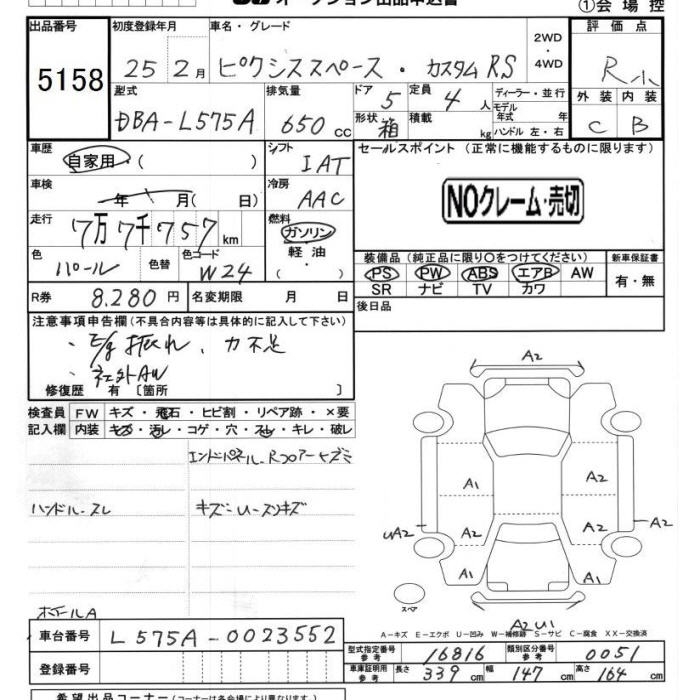 オークション出品申込書
①会場控
出品番号 初度登録年月 車名・グレード 2WD・4WD 評価点
5158 25年2月 ピクシススペース・カスタムRS R小
型式 排気量 ドア 5 定員 4人 ディーラー・並行 外装 内装
DBA-L575A 650cc 形状 箱 積載 kg モデル年式 年 ハンドル 左・右 C B
車歴 自家用・( ) シフト IAT セールスポイント (正常に機能するものに限ります)
車検 年 月( 日) 冷房 AAC
NOクレーム・売切
走行 7万7千757km 燃料 ガソリン・軽油・( )
色 パール 色替 色コード W24
装備品 (純正品に限り○をつけてください) 新車保証書
PS PW ABS エアB AW 有・無
SR ナビ TV カワ
R券 8.280円 名変期限 月 日 後日品
注意事項申告欄(不具合内容等は具体的に記入して下さい)
・E/g 振れ、力不足
・社外AW
修復歴 有 〔箇所 〕
検査員 FW キズ・飛石・ヒビ割・リペア跡・×要
記入欄 内装 キズ・汚レ・コゲ・穴・スレ・キレ・破レ
エンドパネル-Rフロアーキズミ
ハンドル-スレ
A2
A1 A2
UA2 A2 A2
A1 A1
スペア
A2 U1
A-キズ E-エクボ U-凹み W-補修跡 S-サビ C-腐食 XX-交換済
車台番号 L575A-0023552
型式指定番号 参考 16816 類別区分番号 参考 0051
登録番号
車庫証明用 参考 長さ 339cm 幅 147cm 高さ 164cm
希望出品コーナー(コーナーは各会場により異なります)